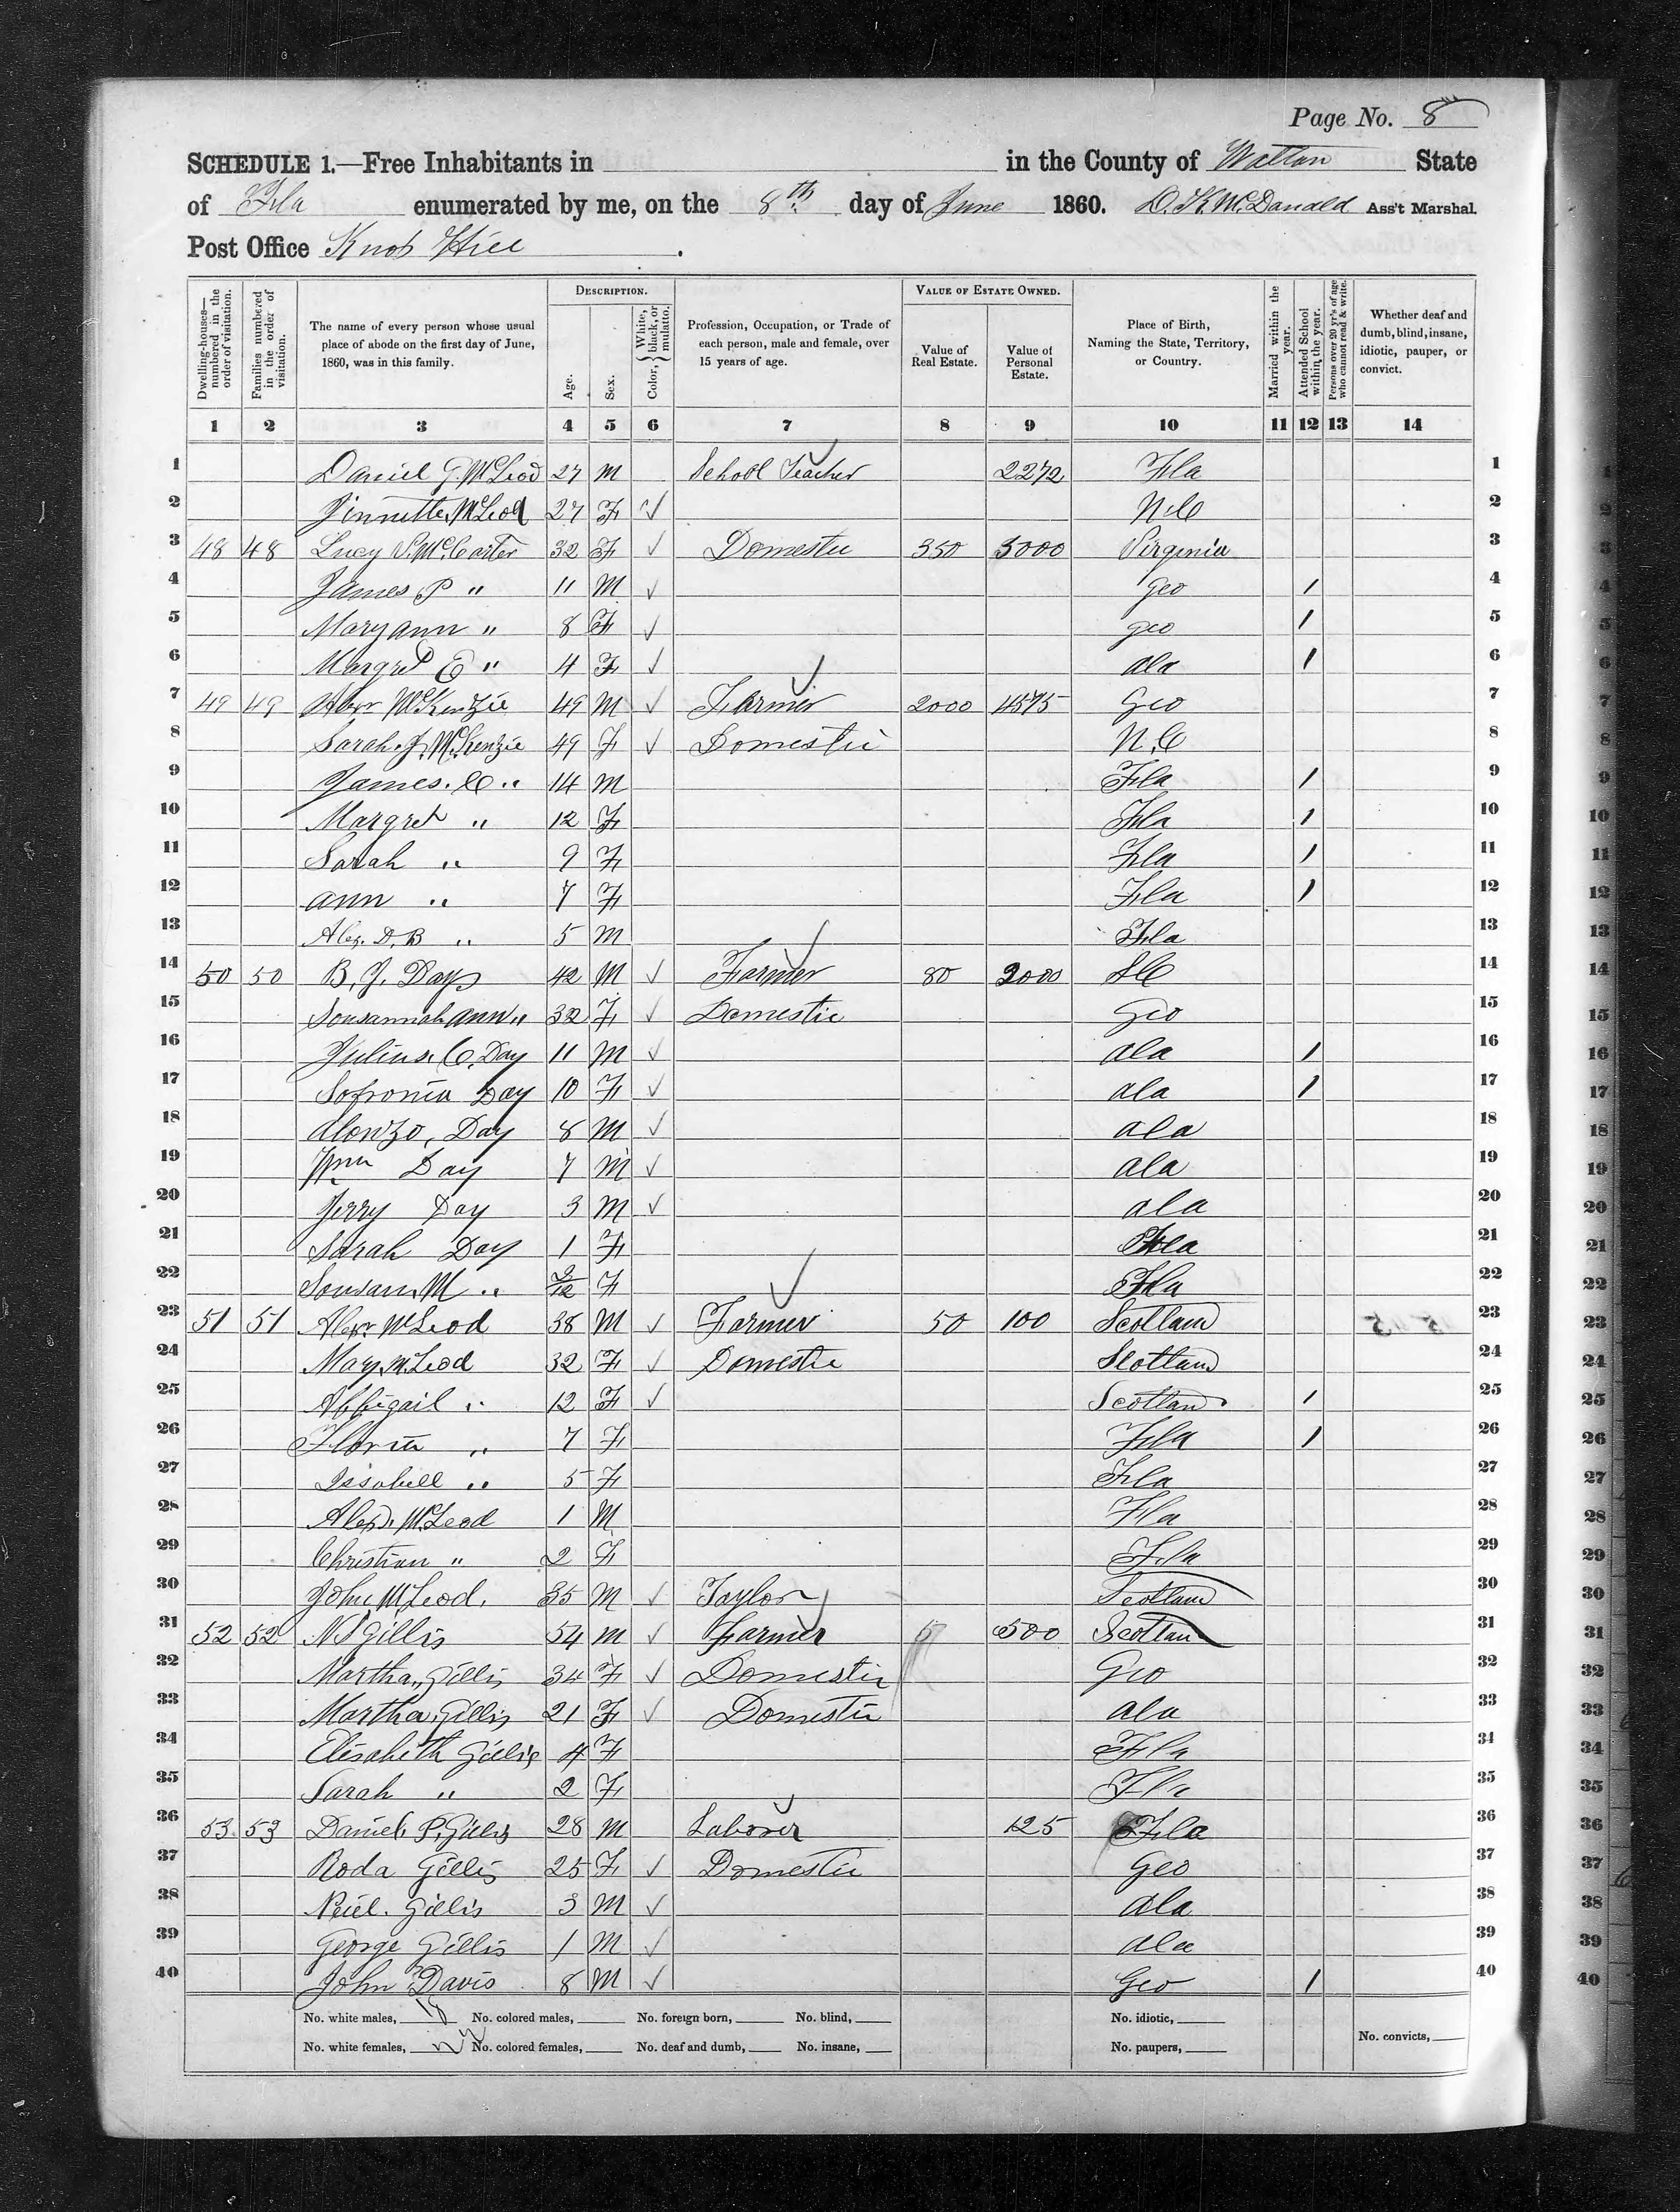 Page No. 8
SCHEDULE 1.—Free Inhabitants in in the County of Walton State
of Fla enumerated by me, on the 8th day of June 1860. D. K. McDanald Ass't Marshal.
Post Office Knob Hill.
Dwelling-houses—numbered in the order of visitation.
Families numbered in the order of visitation.
The name of every person whose usual place of abode on the first day of June, 1860, was in this family.
DESCRIPTION.
Age.
Sex.
Color, White, black, or mulatto.
Profession, Occupation, or Trade of each person, male and female, over 15 years of age.
VALUE OF ESTATE OWNED.
Value of Real Estate.
Value of Personal Estate.
Place of Birth, Naming the State, Territory, or Country.
Married within the year.
Attended School within the year.
Persons over 20 yr's of age who cannot read & write.
Whether deaf and dumb, blind, insane, idiotic, pauper, or convict.
1 2 3 4 5 6 7 8 9 10 11 12 13 14
1 Daniel G. McLeod 27 M School Teacher 2272 Fla 1
2 Jinnette McLeod 27 F ✓ N.C 2
3 48 48 Lucy McCarter 32 F ✓ Domestic 350 3000 Virginia 3
4 James P " 11 M ✓ Geo / 4
5 Mary ann " 8 F ✓ geo / 5
6 Margret E " 4 F ✓ ala / 6
7 49 49 Alexr McKenzie 49 M ✓ Farmer 2000 4575 Geo 7
8 Sarah. J. McKenzie 49 F ✓ Domestic N.C 8
9 James. C " 14 M Fla / 9
10 Margret " 12 F Fla / 10
11 Sarah " 9 F Fla / 11
12 ann " 7 F Fla / 12
13 Alex. D. B " 5 M Fla 13
14 50 50 B. J. Day 42 M ✓ Farmer 80 2000 SC 14
15 Sousannah ann " 32 F ✓ Domestic Geo 15
16 Julius. C. Day 11 M ✓ ala / 16
17 Sofronia Day 10 F ✓ ala / 17
18 Alonzo, Day 8 M ✓ ala 18
19 Wm Day 7 M ✓ ala 19
20 Jerry Day 3 M ✓ ala 20
21 Sarah Day 1 F Fla 21
22 Sousan. M " 2/12 F Fla 22
23 51 51 Alexr McLeod 38 M ✓ Farmer 50 100 Scotland 23
24 Mary McLeod 32 F ✓ Domestic Scotland 24
25 Abbigail " 12 F ✓ Scotland / 25
26 Floria " 7 F Fla / 26
27 Issabell " 5 F Fla 27
28 Alexr. McLeod 1 M Fla 28
29 Christian " 2 F Fla 29
30 John McLeod. 35 M ✓ Taylor Scotland 30
31 52 52 Gillis 54 M ✓ Farmer 500 Scotlan 31
32 Martha, Gillis 34 F ✓ Domestic Geo 32
33 Martha, Gillis 21 F ✓ Domestic ala 33
34 Elisabeth Gillis 4 F Fla 34
35 Sarah " 2 F Fla 35
36 53 53 Daniel. P. Gillis 28 M Laborer 125 Fla 36
37 Roda Gillis 25 F ✓ Domestic Geo 37
38 Neiel. Gillis 3 M ✓ ala 38
39 George Gillis 1 M ✓ ala 39
40 John Davis 8 M ✓ Geo / 40
No. white males, No. colored males, No. foreign born, No. blind, No. idiotic,
No. white females, No. colored females, No. deaf and dumb, No. insane, No. paupers, No. convicts,